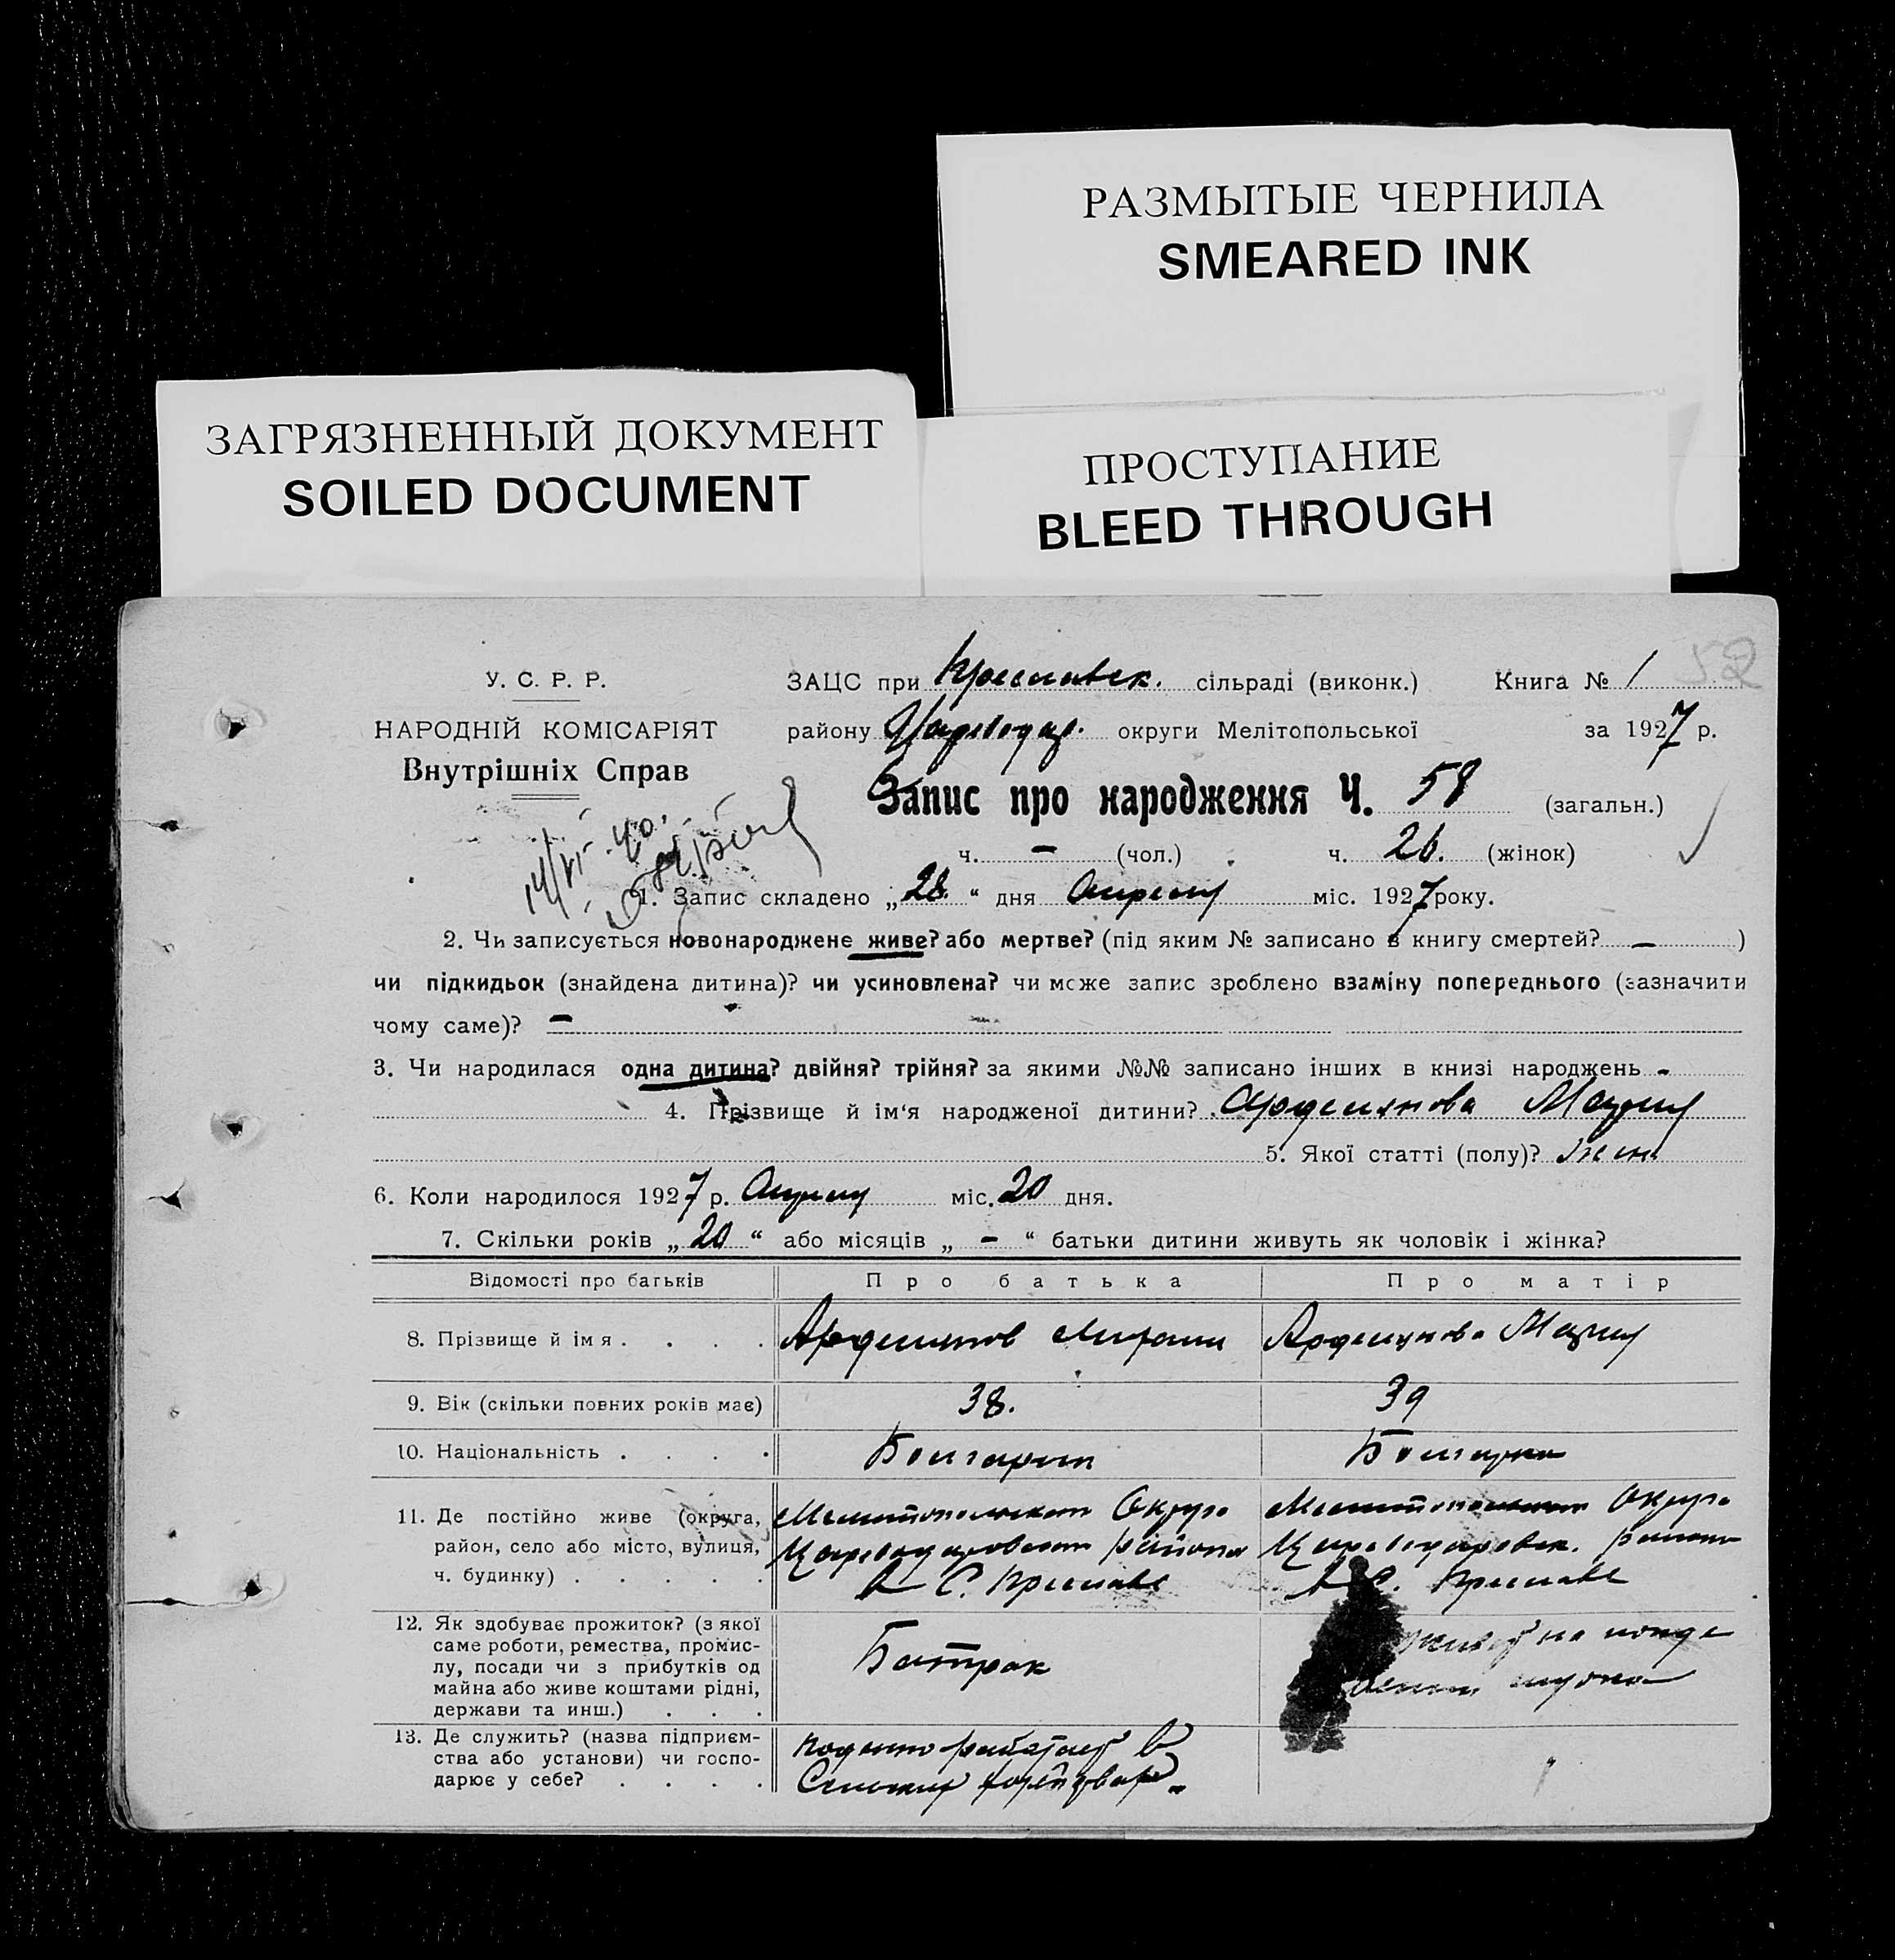 РАЗМЫТЫЕ ЧЕРНИЛА
SMEARED INK
ЗАГРЯЗНЕННЫЙ ДОКУМЕНТ
SOILED DOCUMENT
ПРОСТУПАНИЕ
BLEED THROUGH
У. С. Р. Р.
НАРОДНІЙ КОМІСАРІЯТ
Внутрішніх Справ
ЗАЦС при Преславск. сільраді (виконк.) Книга № 1 52
району Цареводар. округи Мелітопольської за 1927 р.
Запис про народження Ч. 58 (загальн.)
ч. — (чол.) ч. 26. (жінок)
1. Запис складено „28“ дня Апреля міс. 1927 року.
2. Чи записується новонароджене живе? або мертве? (під яким № записано в книгу смертей? — )
чи підкидьок (знайдена дитина)? чи усиновлена? чи може запис зроблено взаміну попереднього (зазначити
чому саме)? —
3. Чи народилася одна дитина? двійня? трійня? за якими №№ записано інших в книзі народжень -
4. Прізвище й ім‘я народженої дитини? Арделянова Мария
5. Якої статті (полу)? жен.
6. Коли народилося 1927 р. Апреля міс. 20 дня.
7. Скільки років „20“ або місяців „ - “ батьки дитини живуть як чоловік і жінка?
Відомості про батьків Про батька Про матір
8. Прізвище й імя . . . . Арделянов Мирон Арделянова Мария
9. Вік (скільки повних років має) 38. 39
10. Національність . . . . Болгарин Болгарка
11. Де постійно живе (округа, Мелитопольской Округа Мелитопольской Округа
район, село або місто, вулиця, Цареводаровского района Цареводаровск. района
ч. будинку) . . . . . С. Преслав Преслав
12. Як здобуває прожиток? (з якої
саме роботи, ремества, промис-
лу, посади чи з прибутків од Батрак
майна або живе коштами рідні,
держави та инш.) . . . мужа
13. Де служить? (назва підприєм- поденно работает в
ства або установи) чи госпо-
дарює у себе? . . . .